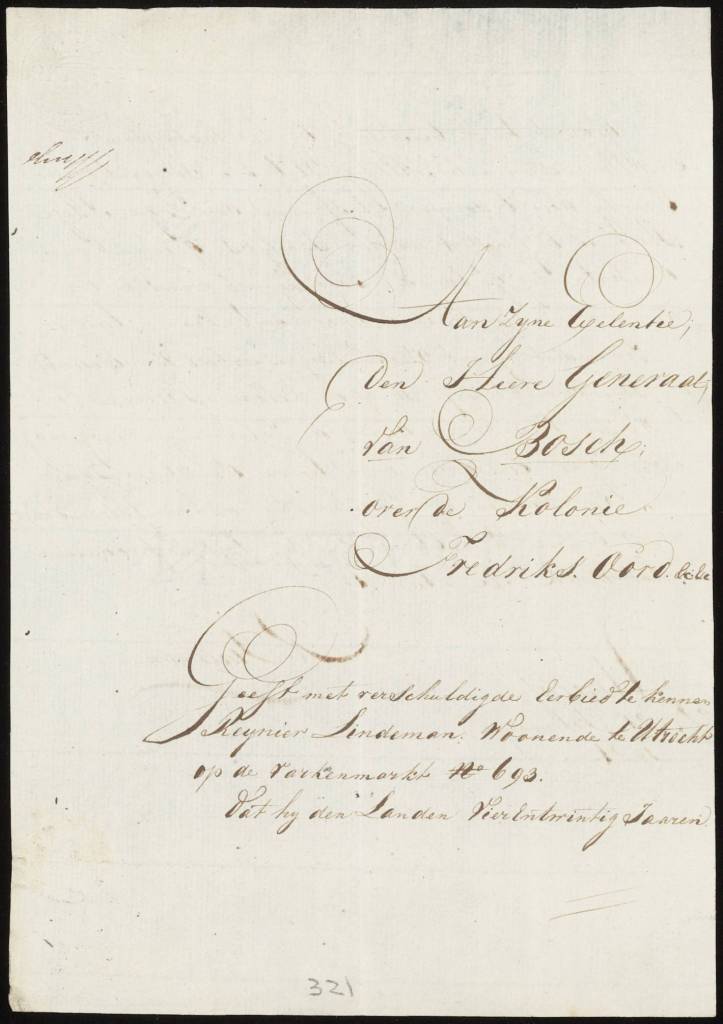 Aan Zyne Exelentie,
den Heere Generaal,
van Bosch,
over de Kolonie
Fredriks. Oord. &c&c
Geeft met verschuldigde Eerbied te kennen
Reynier Lindeman. Woonende te Utrecht
op de varkenmarkt No 693.
Dat hy den Landen VierEntwintig Jaaren
321